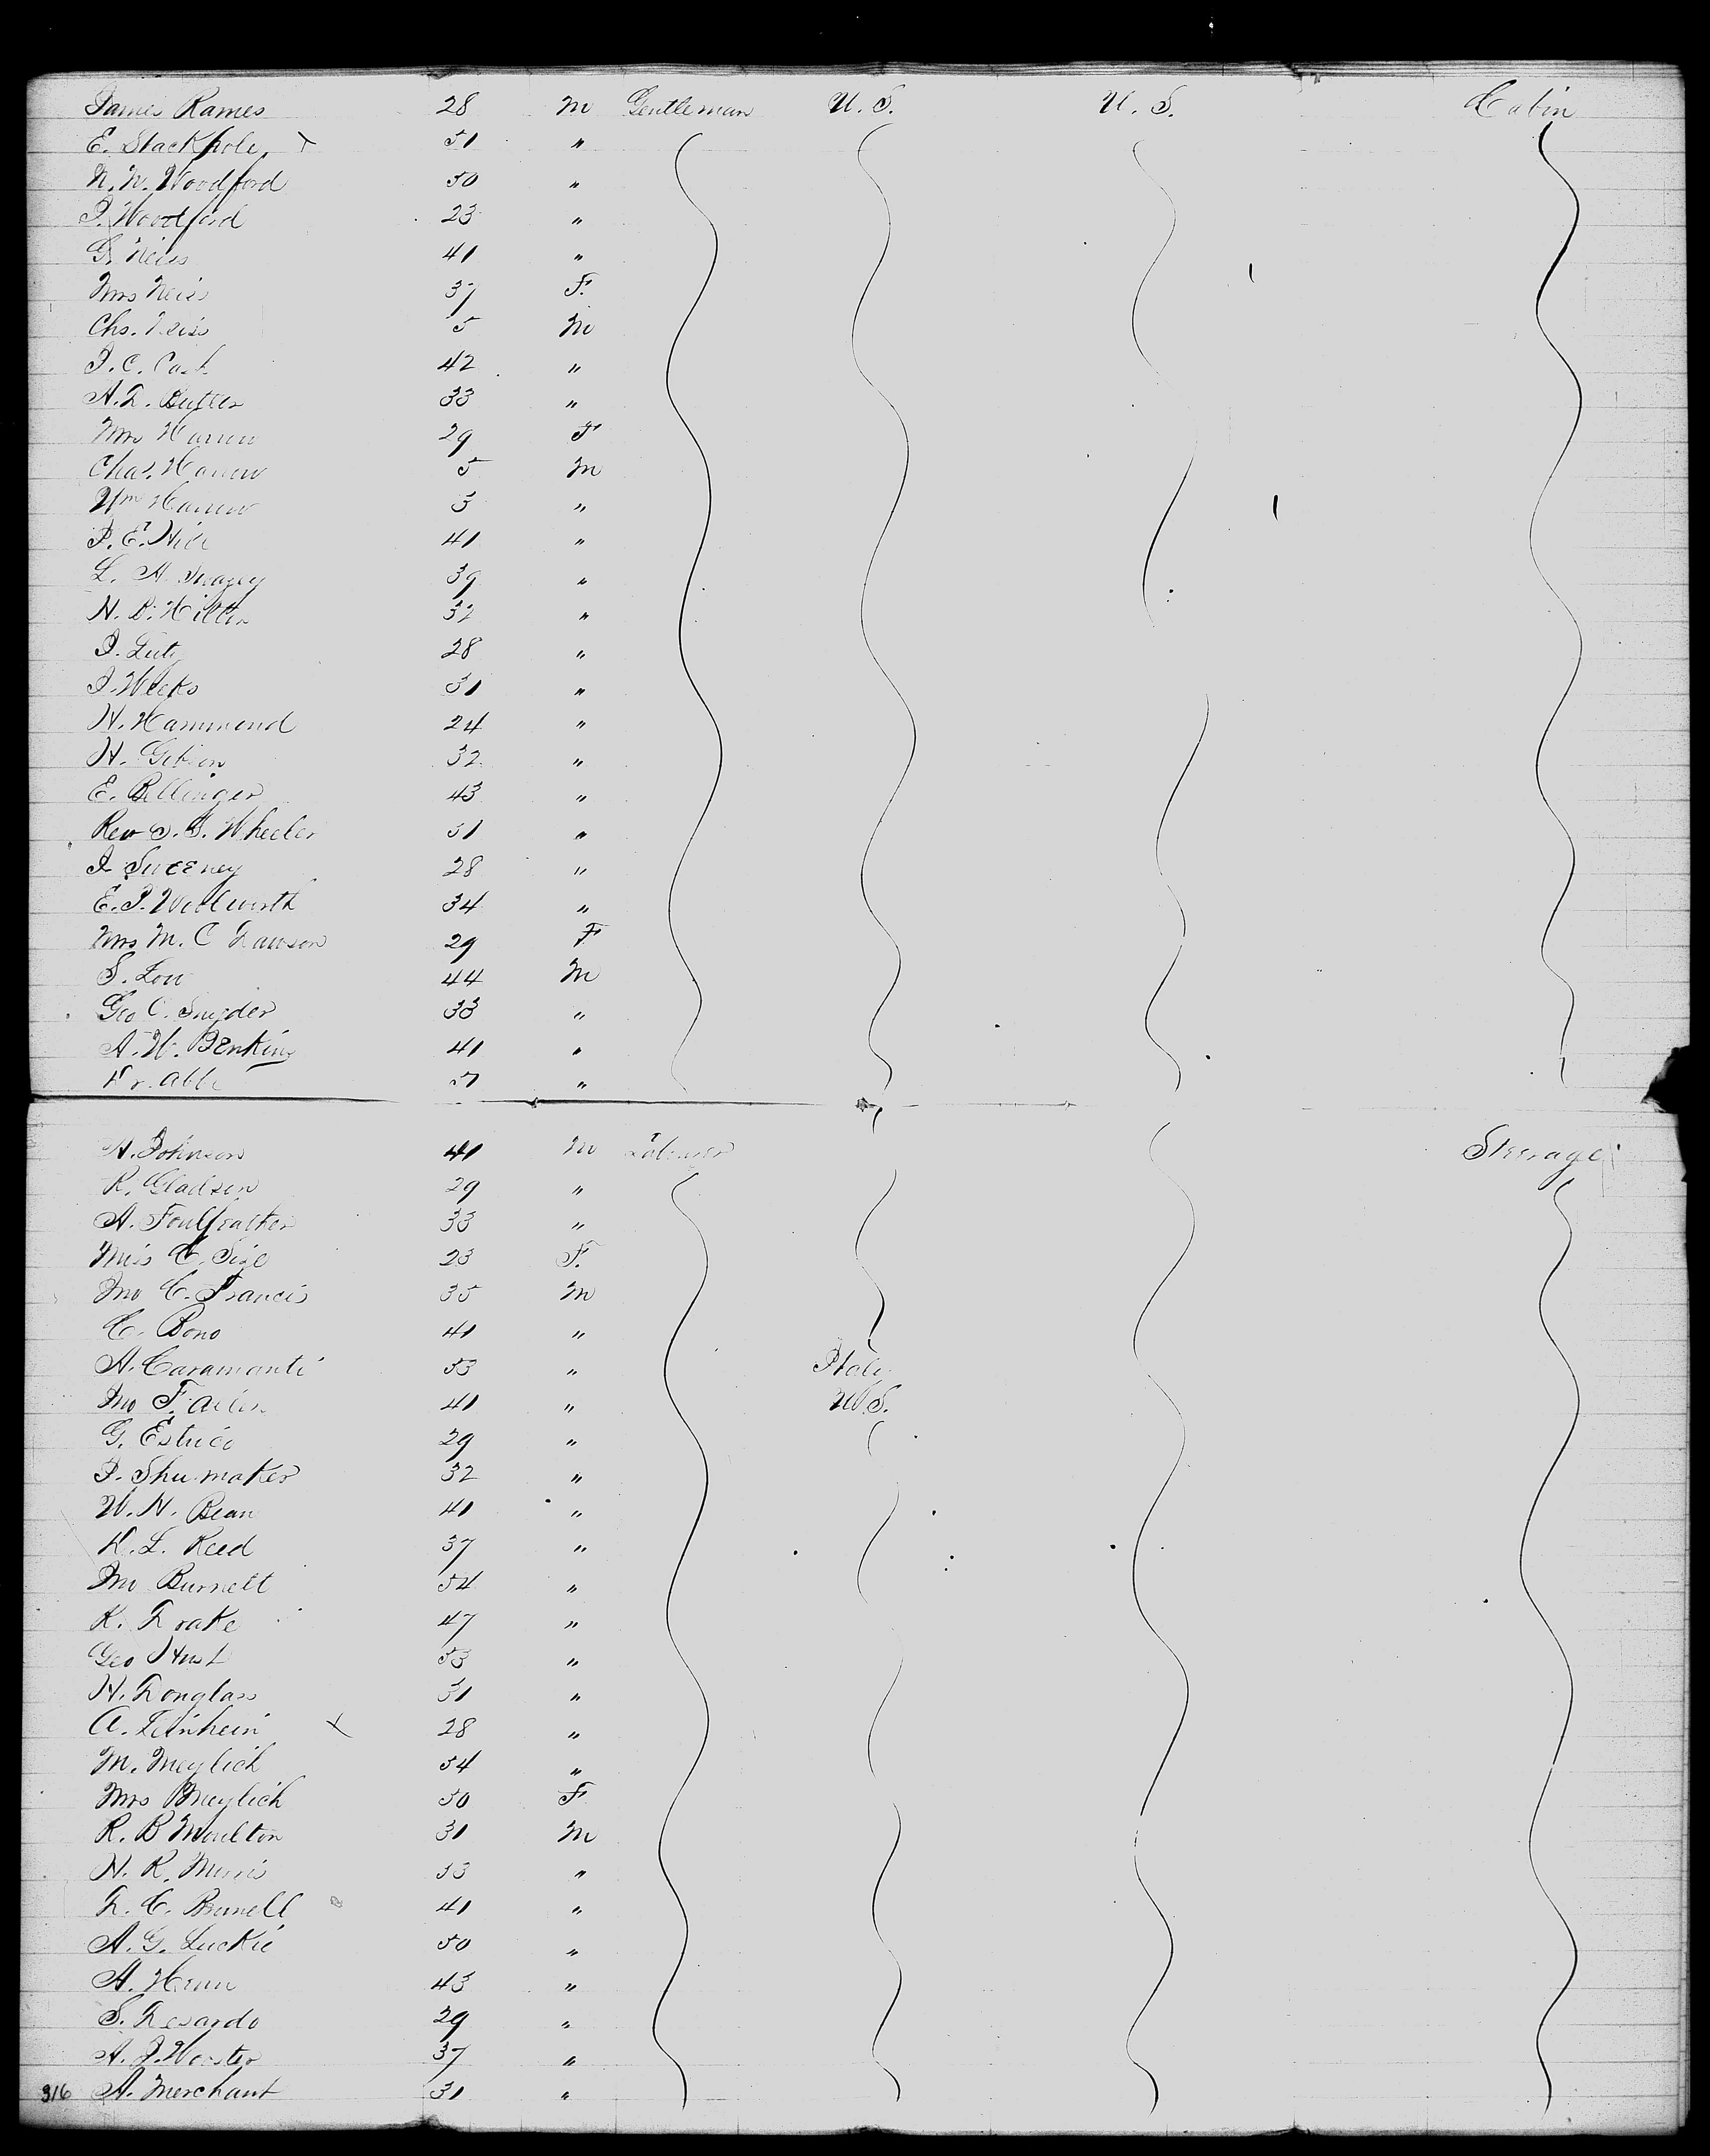 James Rames 28 M Gentleman U.S. U.S. Cabin
E. Stackpole 51 "
N. N. Woodford 50 "
J. Woodford 23 "
G. Neiss 41 "
Mrs Neiss 37 F.
Chs. Neiss 5 M
J. C. Cash 42 "
A. L. Butler 33 "
Mrs Harrow 29 F
Chas. Harrow 5 M
Wm Harrow 3 "
J. E. Hill 41 "
L. A. 39 "
H. B. 32 "
J. Lutz 28 "
J. Weeks 31 "
H. Hammond 24 "
H. Gibson 32 "
E. Bellinger 43 "
Rev S. G. Wheeler 51 "
J Sweeney 28 "
E. P. Woolworth 34 "
Mrs M. C Dawson 29 F
S. Low 44 M
Geo C. Snyder 33 "
A. W. Benking 41 "
Dr. Abbe "
A. Johnson 41 M Laborer Steerage
R. Gladson 29 "
A. Foulfeather 33 "
Miss C. Size 23 F.
Jno C. Francis 35 M
C. Bono 41 "
A. Caramonti 53 " Italy
Jno F. 41 " U.S.
G. Estrico 29 "
J. Shumaker 32 "
W. H. Bean 41 "
D. L. Reed 37 "
Jno Burnett 54 "
K. Drake 47 "
Geo Hust 53 "
H. Douglass 31 "
A. Leinhein 28 "
M. Meylich 54 "
Mrs Meylich 50 F
R. B Moulton 31 M
H. R. Morris 53 "
D. C. Brunell 41 "
A. G. Luckie 50 "
A. Henn 43 "
S. Desardo 29 "
A. J. Worster 37 "
316 A. Merchant 31 "